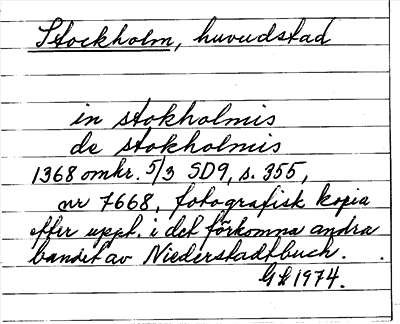 Stockholm, huvudstad
in stokholmis
de stokholmis
1368 omkr. 5/3 SD9, s. 355,
nr 7668, fotografisk kopia
efter uppt. i det förkomna andra
bandet av Niederstadtbuch.
GL 1974.